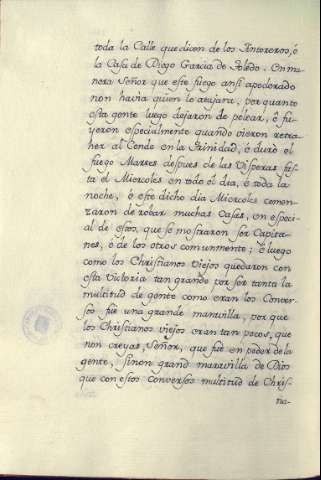 toda la Calle que dicen de los Tintoreros, ò
la Casa de Diego Garcia de Toledo. En ma
nera Señor que este fuego ansi apoderado
non havia quien le atajara, por quanto
esta gente luego dejaron de pelear, ò fu
yeron especialmente quando vieron retra
her al Conde en la Trinidad, ò duró el
fuego Martes despues de las Visperas fas
ta el Miercoles en todo el dia, ò toda la
noche, ò este dicho dia Miercoles comen
zaron de robar muchas Casas, en especi
al de estos, que se mostraron ser Capita
nes, ò de los otros comunmente; ò luego
como los Christianos Viejos quedaron con
esta Victoria tan grande por ser tanta la
multitud de gente como eran los Conver
sos fue una grande maravilla, por que
los Christianos viejos eran tan pocos, que
non creyas, Señor, que fue en poder de la
gente, sinon grand maravilla de Dios
que con estos conversos multitud de Chris-
tia-